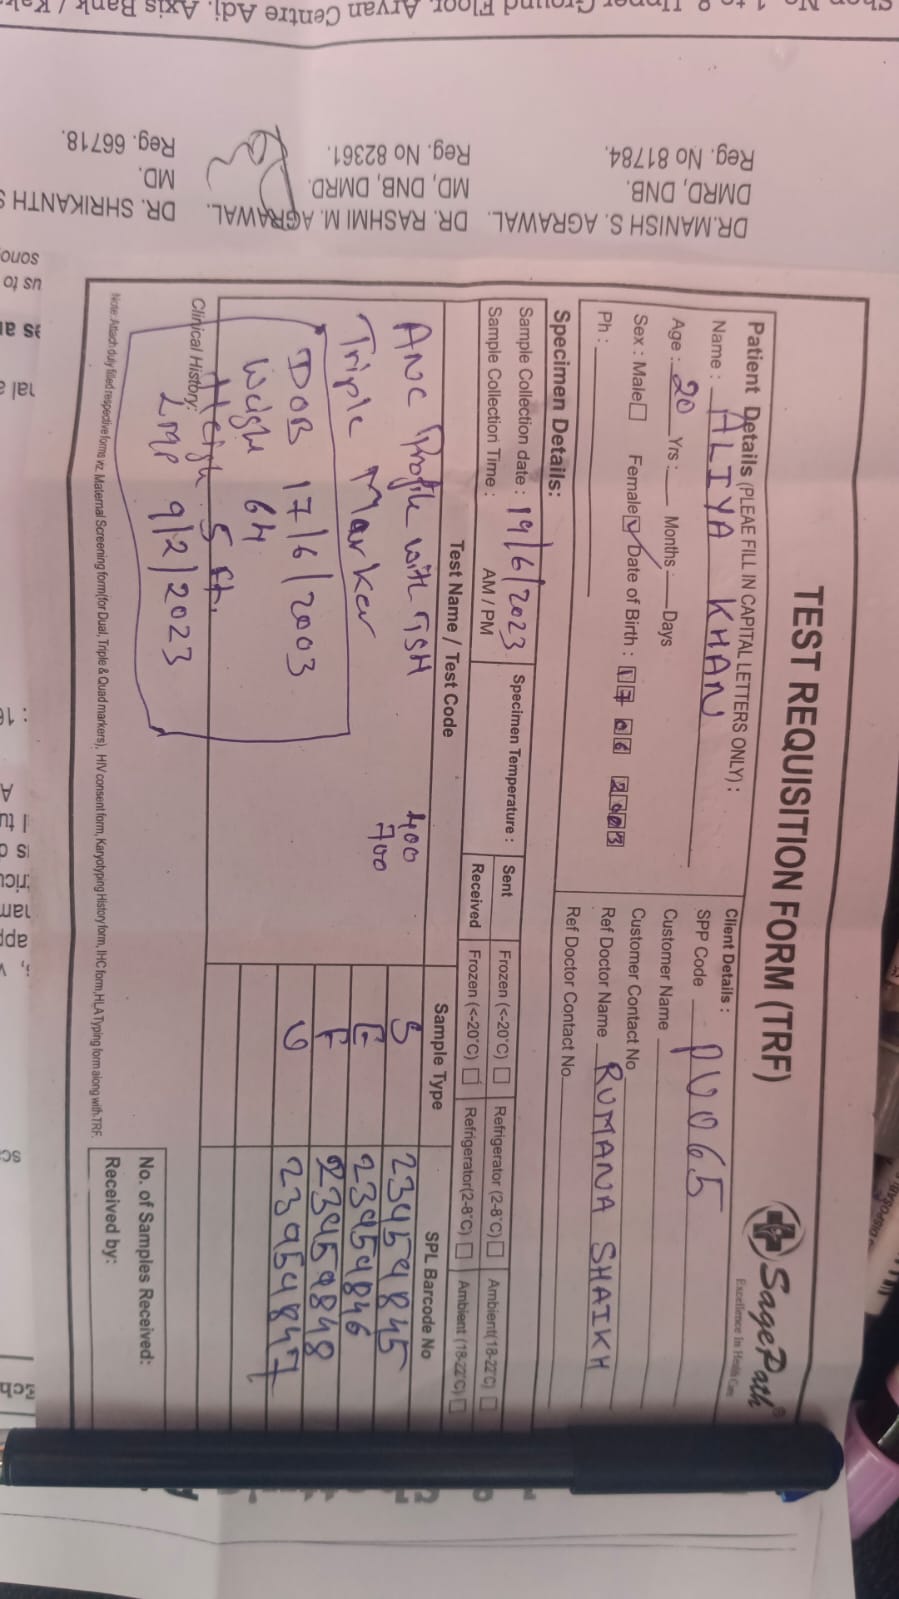 TEST REQUISITION FORM (TRF)
SagePath®
Excellence In Health Care
Patient Details (PLEAE FILL IN CAPITAL LETTERS ONLY) :
Name : ALIYA KHAN
Age : 20 Yrs : Months : Days
Sex : Male Female Date of Birth : 17 06 2003
Ph :
Client Details :
SPP Code PU065
Customer Name
Customer Contact No
Ref Doctor Name RUMANA SHAIKH
Ref Doctor Contact No.
Specimen Details:
Sample Collection date : 19/6/2023
Sample Collection Time : AM / PM
Specimen Temperature :
Sent Frozen (<-20°C) Refrigerator (2-8°C) Ambient(18-22°C)
Received Frozen (<-20°C) Refrigerator(2-8°C) Ambient (18-22°C)
Test Name / Test Code Sample Type SPL Barcode No
ANC Profile with TSH 400 S 23459845
Triple Marker 700 F 23459846
F 23459848
U 23459847
DOB 17/6/2003
Weigh 64
Heigh 5 ft.
Clinical History:
LMP 9/2/2023
Note: Attach duly filled respective forms viz. Maternal Screening form(for Dual, Triple & Quad markers), HIV consent form, Karyotyping History form, IHC form, HLA Typing form along with TRF.
No. of Samples Received:
Received by:
DR.MANISH S. AGRAWAL.
DMRD, DNB.
Reg. No 81784.
DR. RASHMI M. AGRAWAL.
MD, DNB, DMRD.
Reg. No 82361.
DR. SHRIKANTH S
MD.
Reg. 66718.
Upper Ground Floor, Aryan Centre Adj. Axis Bank /